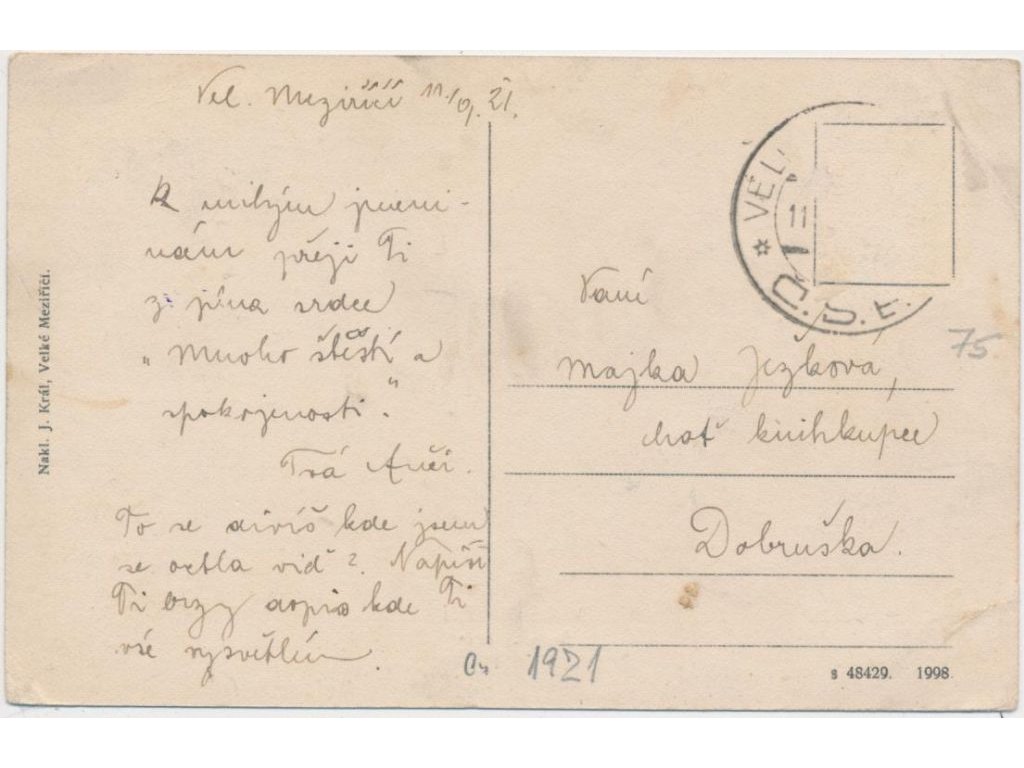 Vel. Meziříčí 11./9. 21.
K milým jmeni-
nám přeji Ti
z plna srdce
„Mnoho štěstí a
spokojenosti."
Tvá Anči.
To se divíš kde jsem
se octla viď? Napíši
Ti brzy dopis kde Ti
vše vysvětlím.
Nakl. J. Král, Velké Meziříčí.
* VEL.
11
Č.S.
75
Paní
Majka Ježková,
choť knihkupce
Dobruška.
1921
s 48429. 1998.